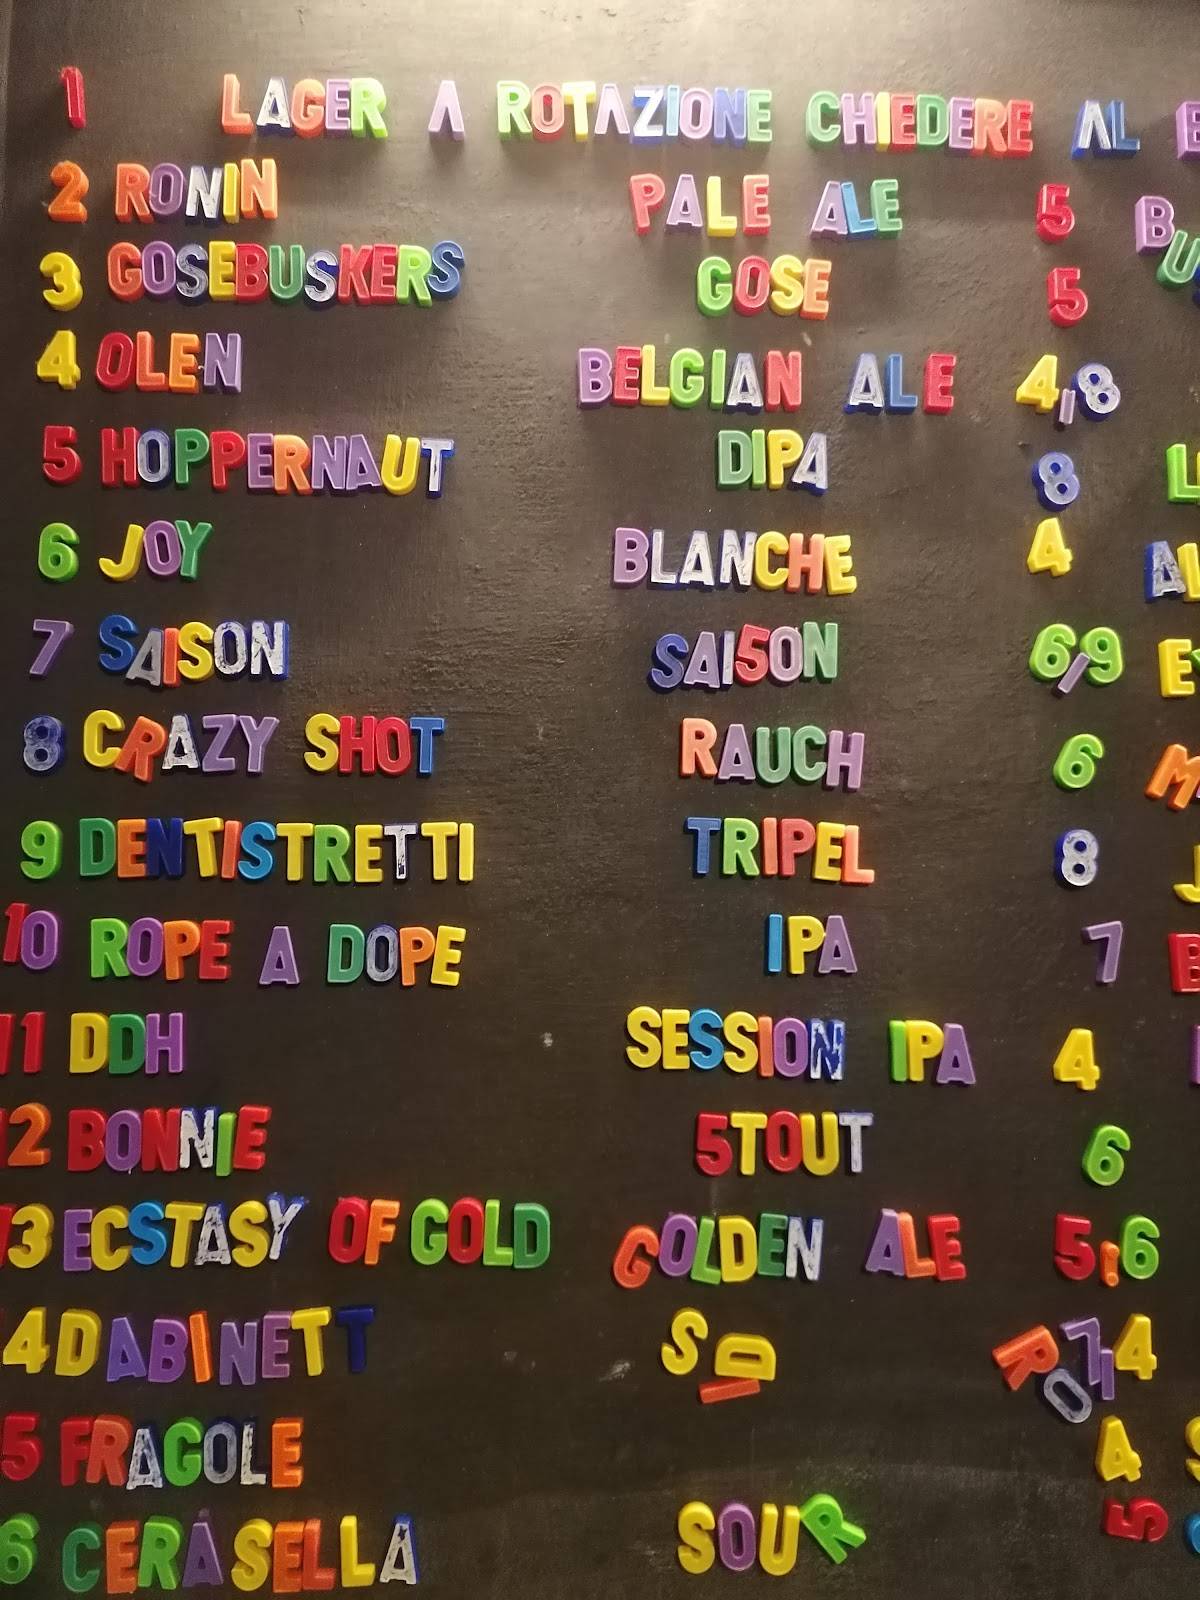 1 LAGER A ROTAZIONE CHIEDERE AL
2 RONIN PALE ALE 5
3 GOSEBUSKERS GOSE 5
4 OLEN BELGIAN ALE 4,8
5 HOPPERNAUT DIPA 8
6 JOY BLANCHE 4
7 SAISON SAI5ON 6,9
8 CRAZY SHOT RAUCH 6
9 DENTISTRETTI TRIPEL 8
10 ROPE A DOPE IPA 7
11 DDH SESSION IPA 4
12 BONNIE 5TOUT 6
13 ECSTASY OF GOLD GOLDEN ALE 5,6
4 DABINETT
5 FRAGOLE 4
6 CERASELLA SOUR 5